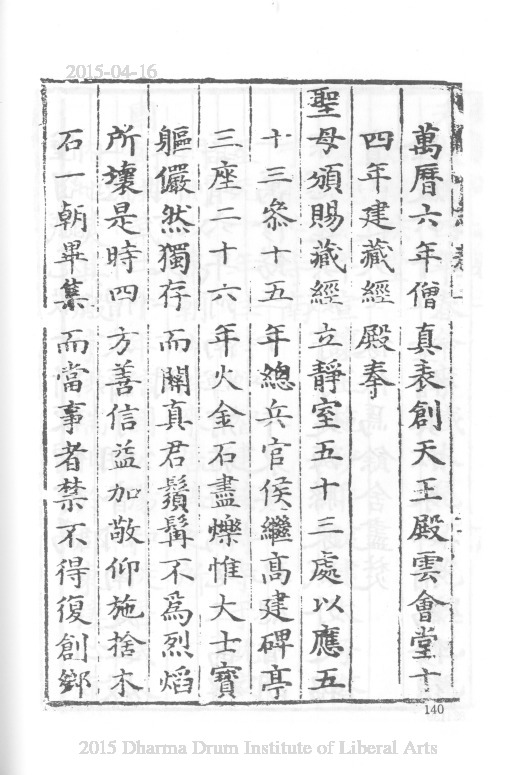 2015-04-16
萬曆六年僧真表創天王殿雲會堂十
四年建藏經殿奉
聖母頒賜藏經立靜室五十三處以應五
十三參十五年總兵官侯繼高建碑亭
三座二十六年火金石盡爍惟大士寶
軀儼然獨存而關真君鬚髯不為烈焰
所壞是時四方善信益加敬仰施捨木
石一朝畢集而當事者禁不得復創鄉
140
2015 Dharma Drum Institute of Liberal Arts